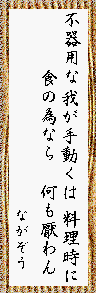 不器用な我が手動くは 料理時に
食の為なら 何も厭わん
ながぞう